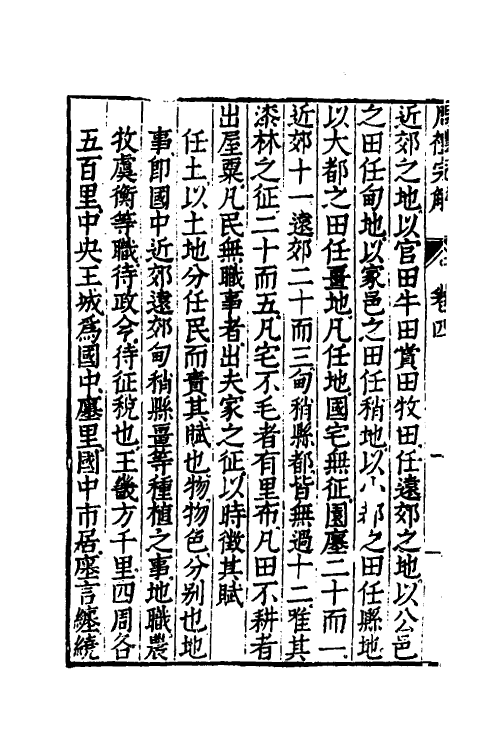 周禮完解 卷四
近郊之地以官田牛田賞田牧田任遠郊之地以公邑
之田任甸地以家邑之田任稍地以小都之田任縣地
以大都之田任畺地凡任地國宅無征園廛二十而一
近郊十一遠郊二十而三甸稍縣都皆無過十二唯其
漆林之征二十而五凡宅不毛者有里布凡田不耕者
出屋粟凡民無職事者出夫家之征以時徵其賦
任土以土地分任民而責其賦也物物色分别也地
事即國中近郊遠郊甸稍縣畺等種植之事地職農
牧虞衡等職待政令待征稅也王畿方千里四周各
五百里中央王城爲國中廛里國中市居廛言纏繞